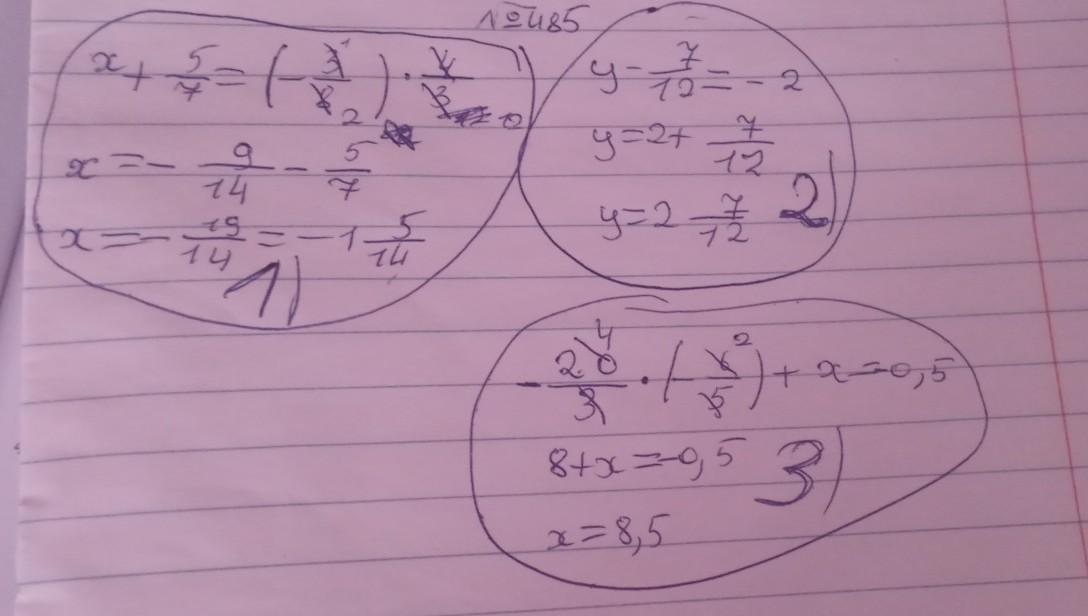 №485
x + 5/7 = (-3/8) · 4/3
x = - 9/14 - 5/7
x = - 19/14 = -1 5/14
1)
y - 7/12 = - 2
y = 2 + 7/12
y = 2 7/12 2)
- 20/3 · (- 6/5) + x = 0,5
8 + x = -0,5 3)
x = 8,5